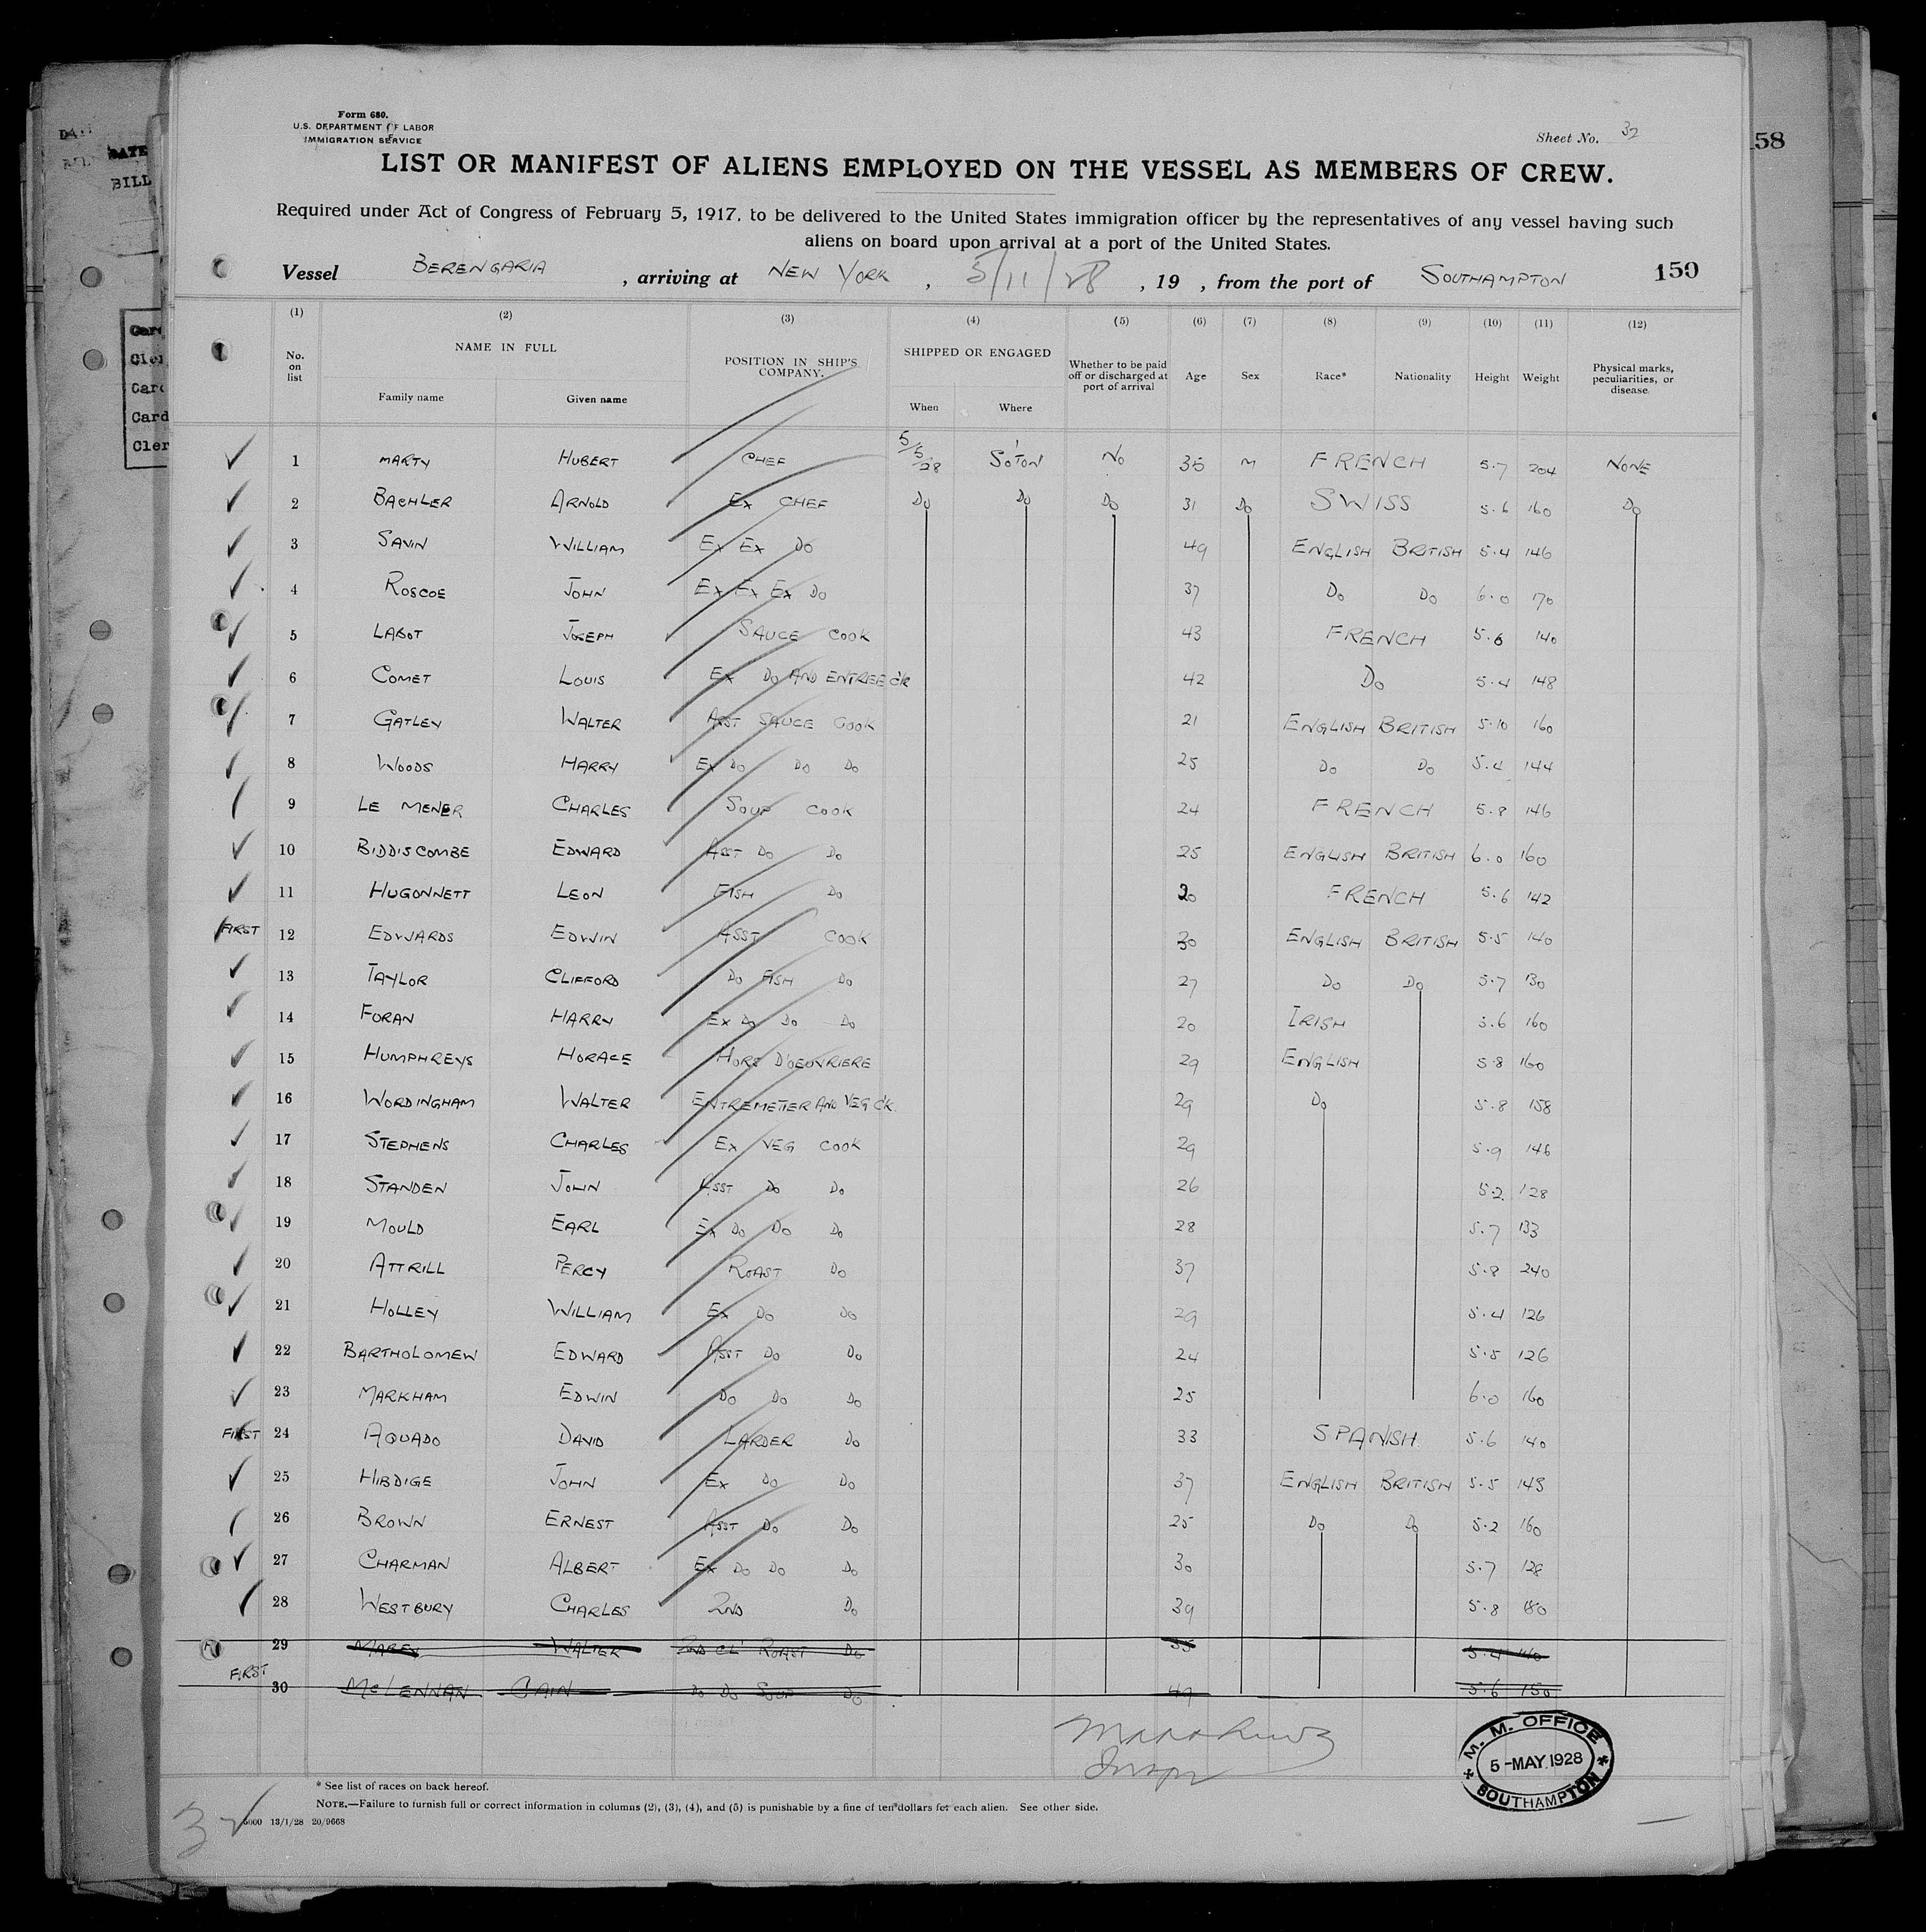 Form 680.
U.S. DEPARTMENT OF LABOR
IMMIGRATION SERVICE
Sheet No. 32
58
DATE
BILL
LIST OR MANIFEST OF ALIENS EMPLOYED ON THE VESSEL AS MEMBERS OF CREW.
Required under Act of Congress of February 5, 1917, to be delivered to the United States immigration officer by the representatives of any vessel having such
aliens on board upon arrival at a port of the United States.
Vessel BERENGARIA , arriving at NEW YORK , 5/11/28 , 19 , from the port of SOUTHAMPTON 159
(1) (2) (3) (4) (5) (6) (7) (8) (9) (10) (11) (12)
No. on list NAME IN FULL POSITION IN SHIP'S COMPANY. SHIPPED OR ENGAGED Whether to be paid off or discharged at port of arrival Age Sex Race* Nationality Height Weight Physical marks, peculiarities, or disease.
Family name Given name When Where
1 MARTY HUBERT CHEF 5/5/28 SO'TON NO 35 M FRENCH 5.7 204 NONE
2 BACHLER ARNOLD EX CHEF DO DO DO 31 DO SWISS 5.6 160 DO
3 SAVIN WILLIAM EX EX DO 49 ENGLISH BRITISH 5.4 146
4 ROSCOE JOHN EX EX EX DO 37 DO DO 6.0 170
5 LABOT JOSEPH SAUCE COOK 43 FRENCH 5.6 140
6 COMET LOUIS EX DO AND ENTREE C'K 42 DO 5.4 148
7 GATLEY WALTER ASST SAUCE COOK 21 ENGLISH BRITISH 5.10 160
8 WOODS HARRY EX DO DO DO 25 DO DO 5.4 144
9 LE MENER CHARLES SOUP COOK 24 FRENCH 5.8 146
10 BIDDISCOMBE EDWARD ASST DO DO 25 ENGLISH BRITISH 6.0 160
11 HUGONNETT LEON FISH DO 20 FRENCH 5.6 142
FIRST 12 EDWARDS EDWIN ASST COOK 30 ENGLISH BRITISH 5.5 140
13 TAYLOR CLIFFORD DO FISH DO 27 DO DO 5.7 130
14 FORAN HARRY EX DO DO DO 20 IRISH 5.6 160
15 HUMPHREYS HORACE HORS D'OEUVRIERE 29 ENGLISH 5.8 160
16 WORDINGHAM WALTER ENTREMETIER AND VEG C'K. 29 DO 5.8 158
17 STEPHENS CHARLES EX VEG COOK 29 5.9 146
18 STANDEN JOHN ASST DO DO 26 5.2 128
19 MOULD EARL EX DO DO DO 28 5.7 133
20 ATTRILL PERCY ROAST DO 37 5.8 240
21 HOLLEY WILLIAM EX DO DO 29 5.4 126
22 BARTHOLOMEW EDWARD ASST DO DO 24 5.5 126
23 MARKHAM EDWIN DO DO DO 25 6.0 160
FIRST 24 AQUADO DAVID LARDER DO 33 SPANISH 5.6 140
25 HIBDIGE JOHN EX DO DO 37 ENGLISH BRITISH 5.5 143
26 BROWN ERNEST ASST DO DO 25 DO DO 5.2 160
27 CHARMAN ALBERT EX DO DO DO 30 5.7 128
28 WESTBURY CHARLES 2ND DO 39 5.8 180
29 WALTER 2ND CL' ROAST DO 35 5.4 140
FIRST 30 McLENNAN CAIN DO DO SOUP DO 49 5.6 150
M. M. OFFICE
5-MAY.1928
SOUTHAMPTON
* See list of races on back hereof.
NOTE.—Failure to furnish full or correct information in columns (2), (3), (4), and (5) is punishable by a fine of ten dollars for each alien. See other side.
5000 13/1/28 20/9668